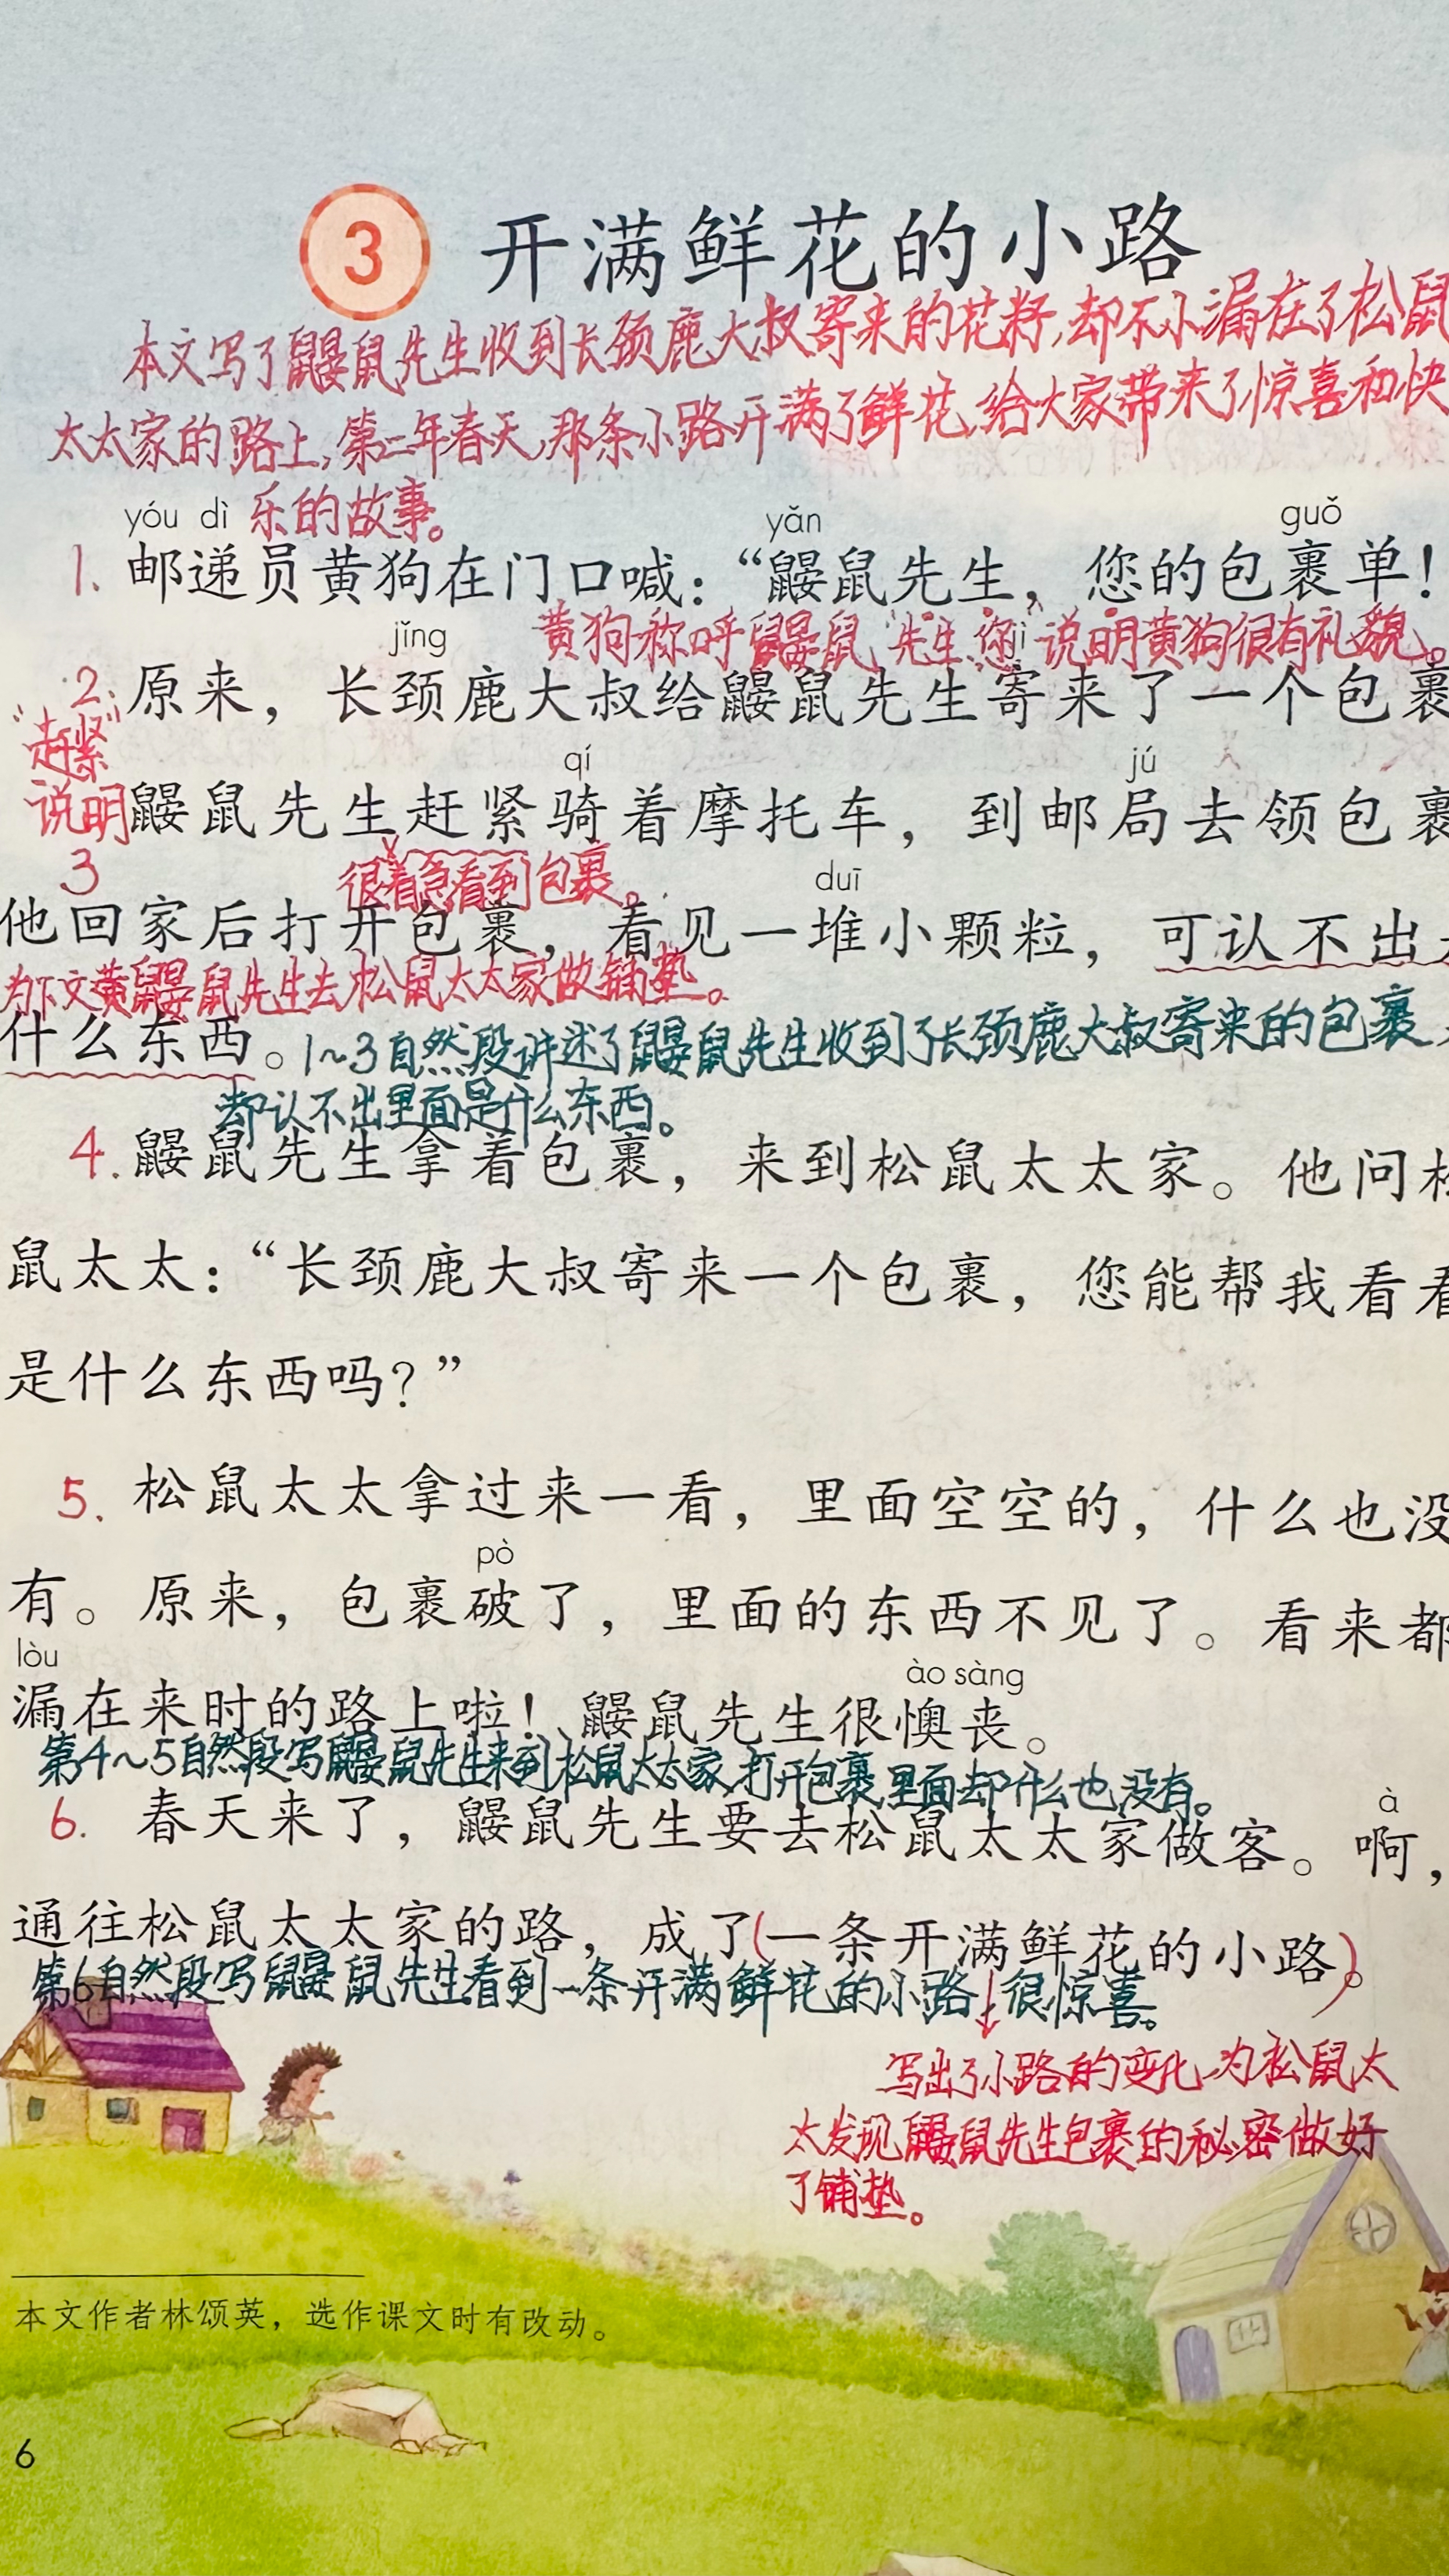 3 开满鲜花的小路
本文写了鼹鼠先生收到长颈鹿大叔寄来的花籽,却不小漏在了松鼠
太太家的路上,第二年春天,那条小路开满了鲜花,给大家带来了惊喜和快
乐的故事。
yóu dì yǎn guǒ
1. 邮递员黄狗在门口喊：“鼹鼠先生，您的包裹单！
黄狗称呼鼹鼠“先生、您”说明黄狗很有礼貌。
jǐng jì
2. 原来，长颈鹿大叔给鼹鼠先生寄来了一个包裹
“赶紧”
qí jú
说明
鼹鼠先生赶紧骑着摩托车，到邮局去领包裹
3
很着急看到包裹。
duī
他回家后打开包裹，看见一堆小颗粒，可认不出
为下文黄鼹鼠先生去松鼠太太家做铺垫。
什么东西。
1~3自然段讲述了鼹鼠先生收到了长颈鹿大叔寄来的包裹
却认不出里面是什么东西。
4. 鼹鼠先生拿着包裹，来到松鼠太太家。他问
鼠太太：“长颈鹿大叔寄来一个包裹，您能帮我看看
是什么东西吗？”
5. 松鼠太太拿过来一看，里面空空的，什么也没
pò
有。原来，包裹破了，里面的东西不见了。看来都
lòu ào sàng
漏在来时的路上啦！鼹鼠先生很懊丧。
第4~5自然段写鼹鼠先生来到松鼠太太家,打开包裹,里面却什么也没有。
à
6. 春天来了，鼹鼠先生要去松鼠太太家做客。啊，
通往松鼠太太家的路，成了(一条开满鲜花的小路)。
第6自然段写鼹鼠先生看到一条开满鲜花的小路,很惊喜。
写出了小路的变化,为松鼠太
太发现鼹鼠先生包裹的秘密做好
了铺垫。
本文作者林颂英，选作课文时有改动。
6